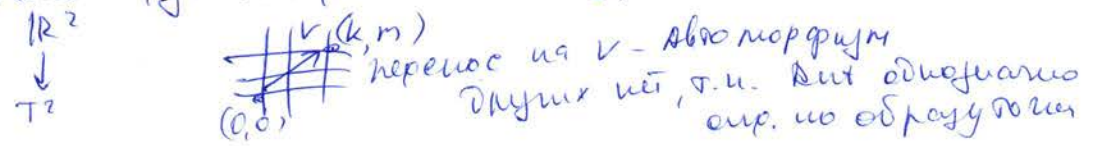 ℝ²
↓
T²
(0,0)
v (k,m)
перенос на v - автоморфизм
других нет, т.к. Aut однозначно
опр. по образу точки